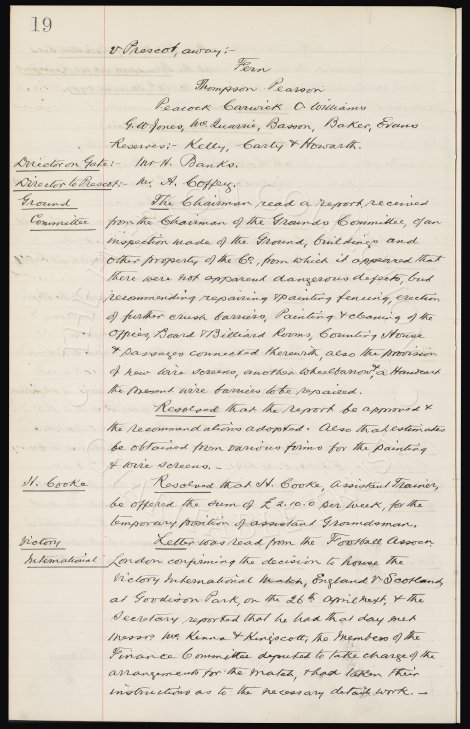 19
v Prescot, away:-
Fern
Thompson Pearson
Peacock Carwick O. Williams
G.W Jones, McQuarrie, Basson, Baker, Evans
Reserves:- Kelly, Carty & Howarth.
Director on Gate:- Mr H. Banks.
Director to Prescot:- Mr. A. Coffey.
Ground The Chairman read a report, received
Committee from the Chairman of the Grounds Committee, of an
inspection made of the Ground, buildings and
other property of the Co, from which it appeared that
there were not apparent dangerous defects, but
recommending repairing & painting fencing, erection
of further crush barriers, Painting & cleaning of the
Offices, Board & Billiard Rooms, Counting House
& passages connected therewith, also the provision
of new wire screens, another wheelbarrow, & a Handcart
the present wire barriers to be repaired.
Resolved that the report be approved &
the recommendations adopted. Also that estimates
be obtained from various firms for the painting
& wire screens. -
H. Cooke Resolved that H. Cooke, Assistant Trainer,
be offered the sum of £2.10.0 per week, for the
temporary position of assistant Groundsman.
Victory Letter was read from the Football Assocn.
International London confirming the decision to house the
Victory International Match, England v Scotland,
at Goodison Park, on the 26th April next, & the
Secretary reported that he had that day met
Messrs McKenna & Kingscott, the Members of the
Finance Committee deputed to take charge of the
arrangements for the match, & had taken their
instructions as to the necessary detail work. -